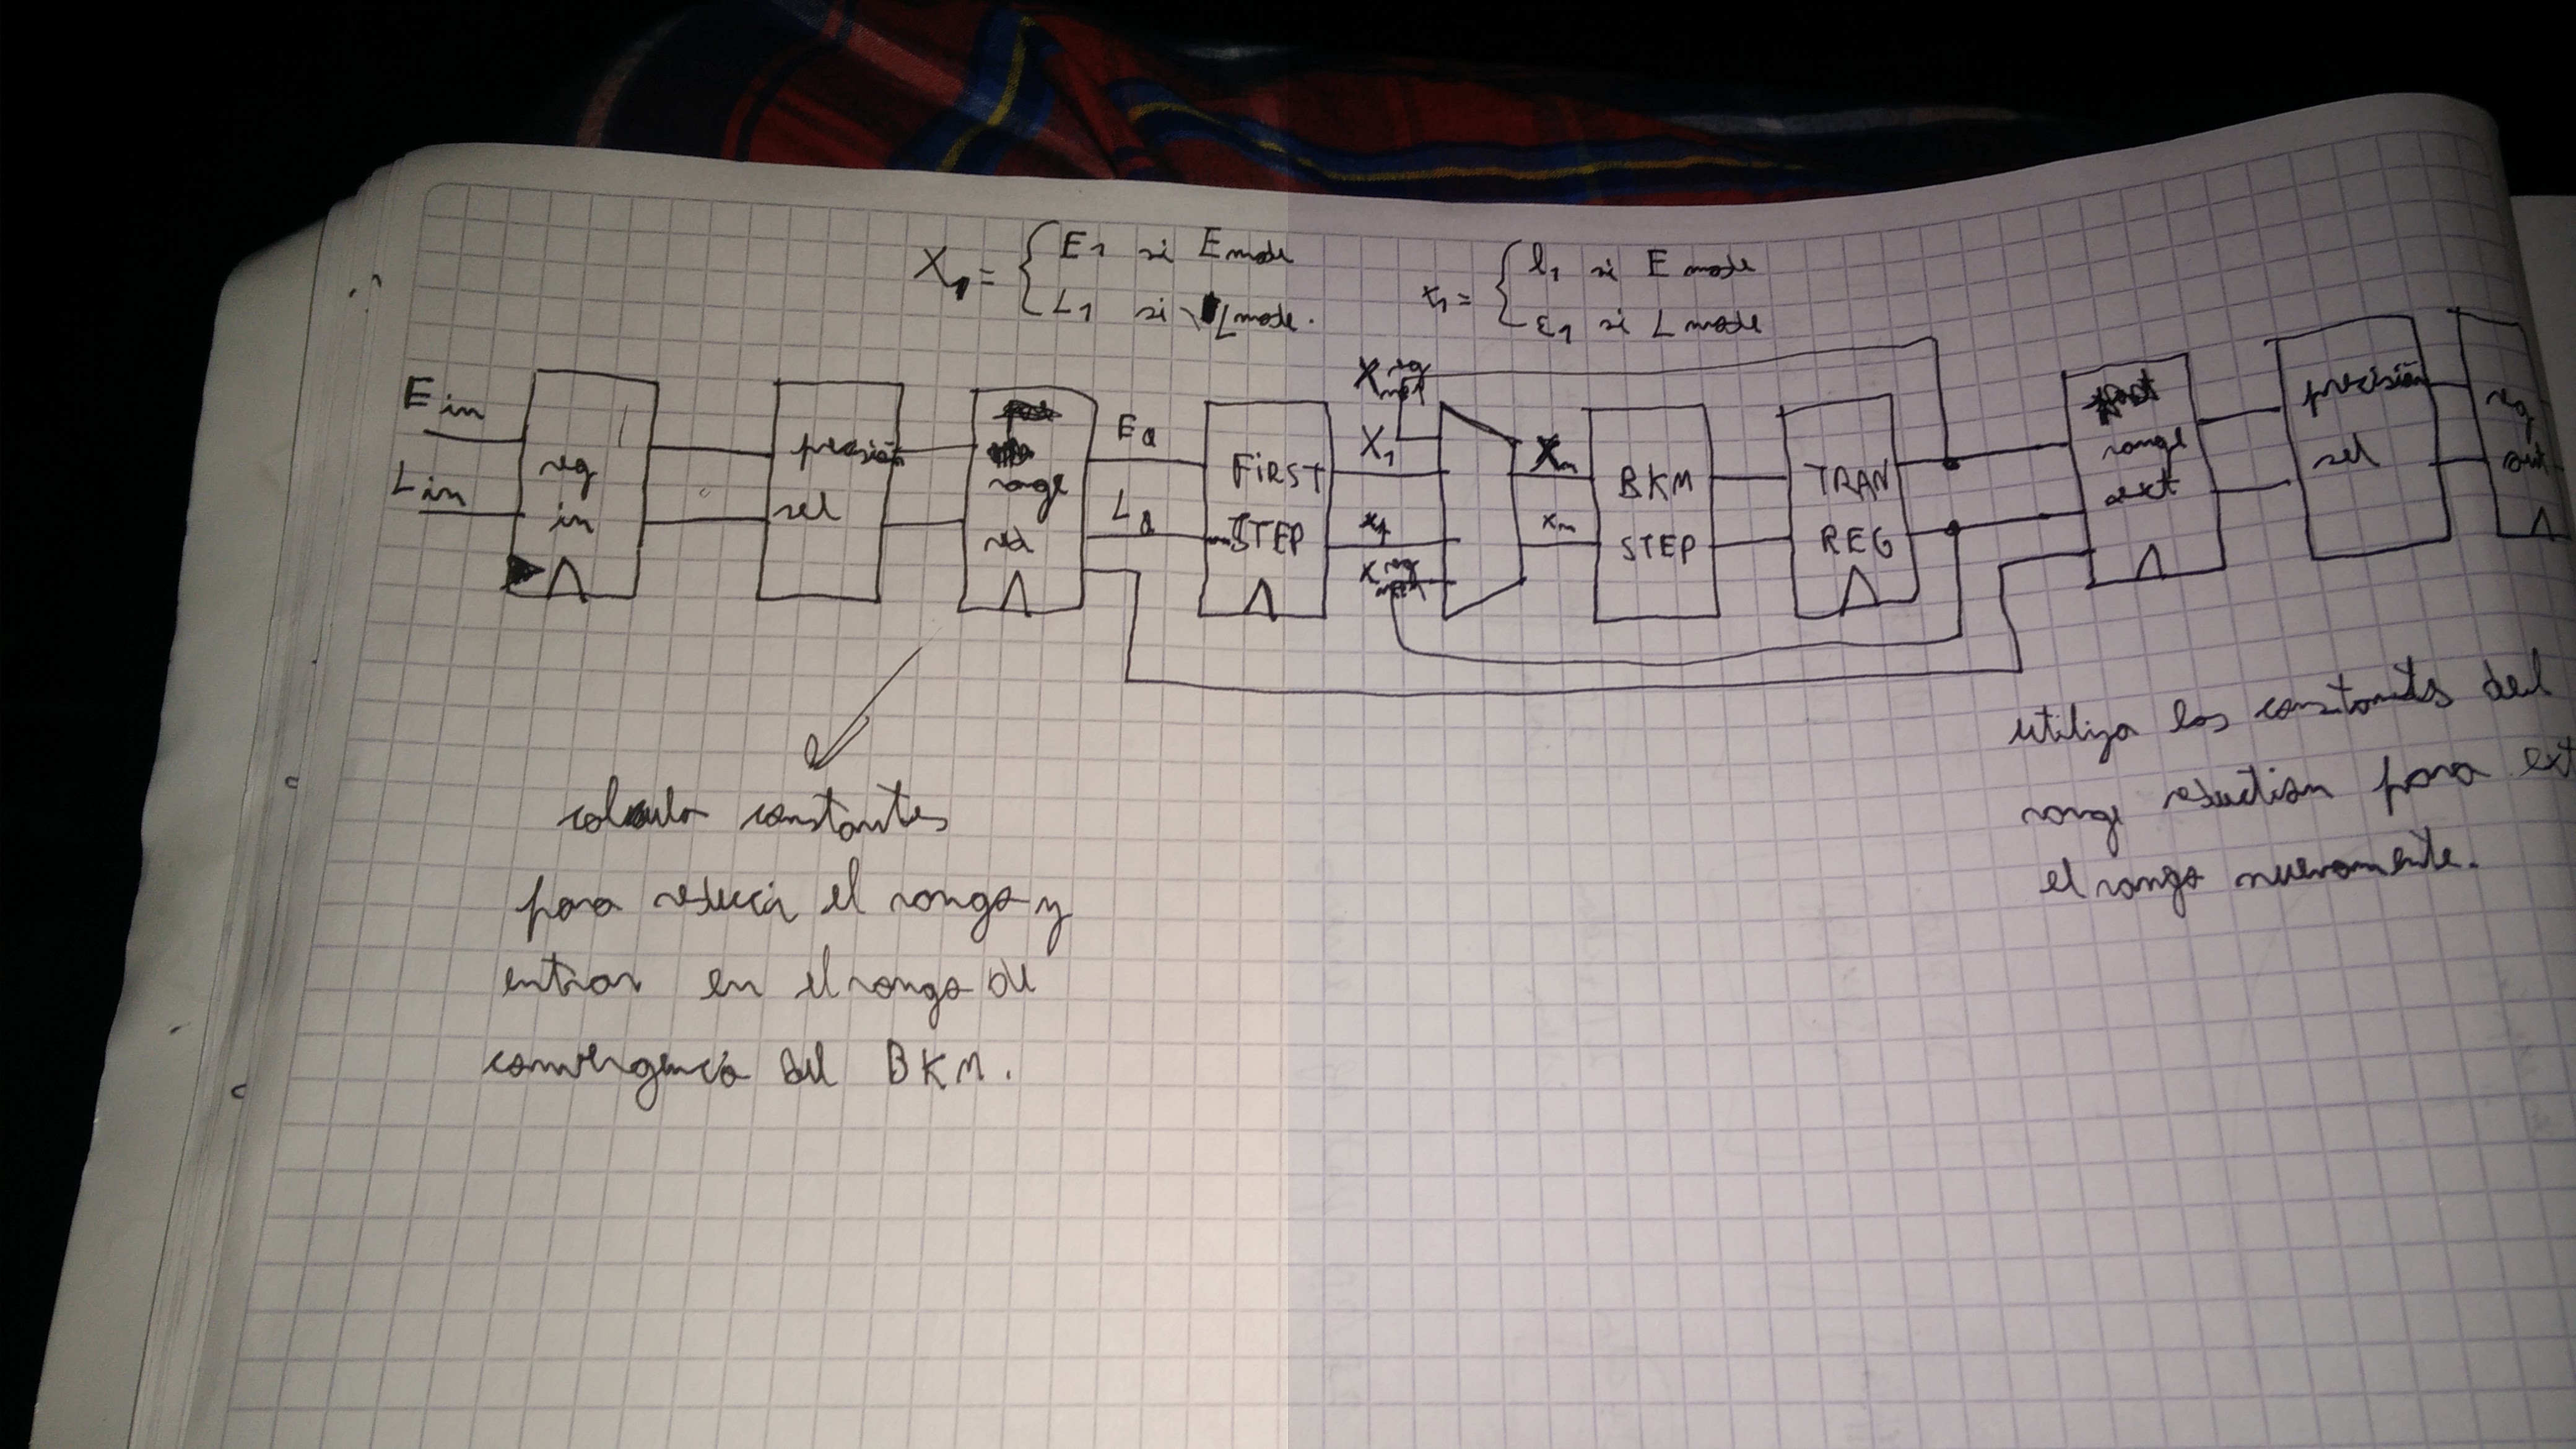 X₁ = { E₁ si E mode
L₁ si L mode.
x₁ = { l₁ si E mode
ε₁ si L mode
E in
L in
reg
in
precisión
sel
range
red
E₀
L₀
FIRST
STEP
X reg
X₁
x₁
x reg
Xₙ
xₙ
BKM
STEP
TRAN
REG
range
ext
precisión
sel
reg
out
calcula constantes
para reducir el rango y
entrar en el rango de
convergencia del BKM.
utiliza las constantes del
range reduction para ext
el rango nuevamente.